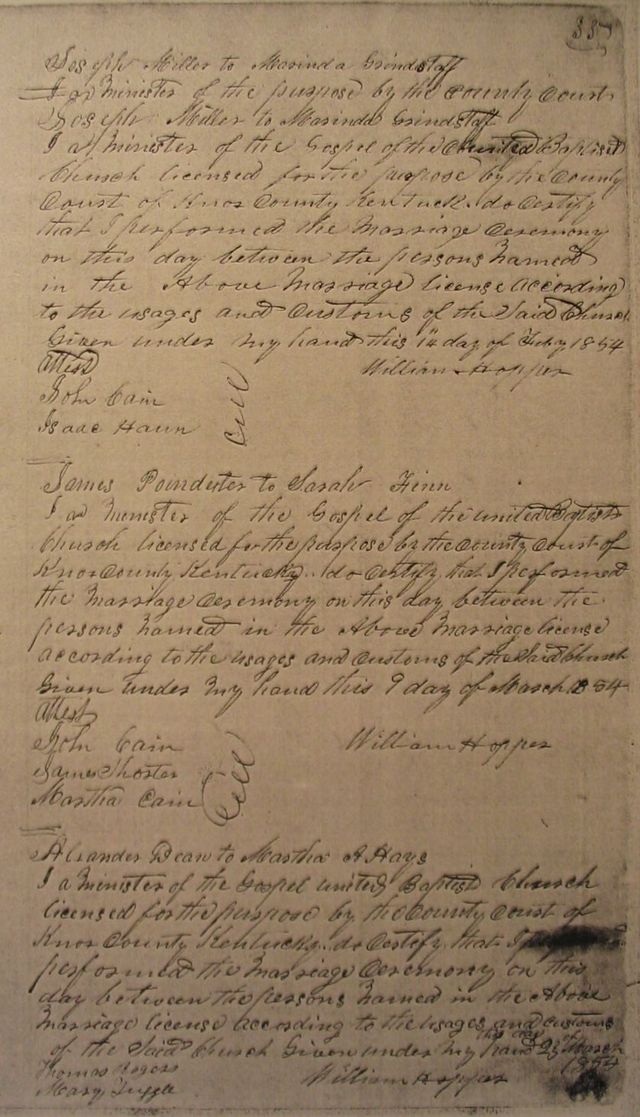 337
Joseph Miller to Marinda Grindstaff
I a Minister of the purpose by the County Court
Joseph Miller to Marinda Grindstaff
I a Minister of the Gospel of the united Baptist
Church licensed for the purpose by the County
Court of Knox County Kentuck. do Certify
that I performed the Marriage Ceremony
on this day between the persons Named
in the Above Marriage license according
to the usages and Customs of the Said Church
Given under my hand this 14 day of Feby 1854
Attest William Hopper
John Cain
Isaac Haun
James Poindexter to Sarah Finn
I a Minister of the Gospel of the united Baptist
Church licensed for the purpose by the County Court of
Knox County Kentucky. do Certify that I performed
the Marriage Ceremony on this day between the
persons Named in the Above Marriage license
according to the usages and Customs of the Said Church
Given under my hand this 9 day of March 1854
Attest
John Cain William Hopper
James
Martha Cain
Alexander Dean to Martha A Hays
I a Minister of the Gospel united Baptist Church
licensed for the purpose by the County Court of
Knox County Kentucky. do Certify that I
performed the Marriage Ceremony on this
day between the persons Named in the Above
Marriage license according to the usages and customs
of the Said Church Given under my hand this day 23 of March
1854
Thomas Rogers William Hopper
Mary Tuggle